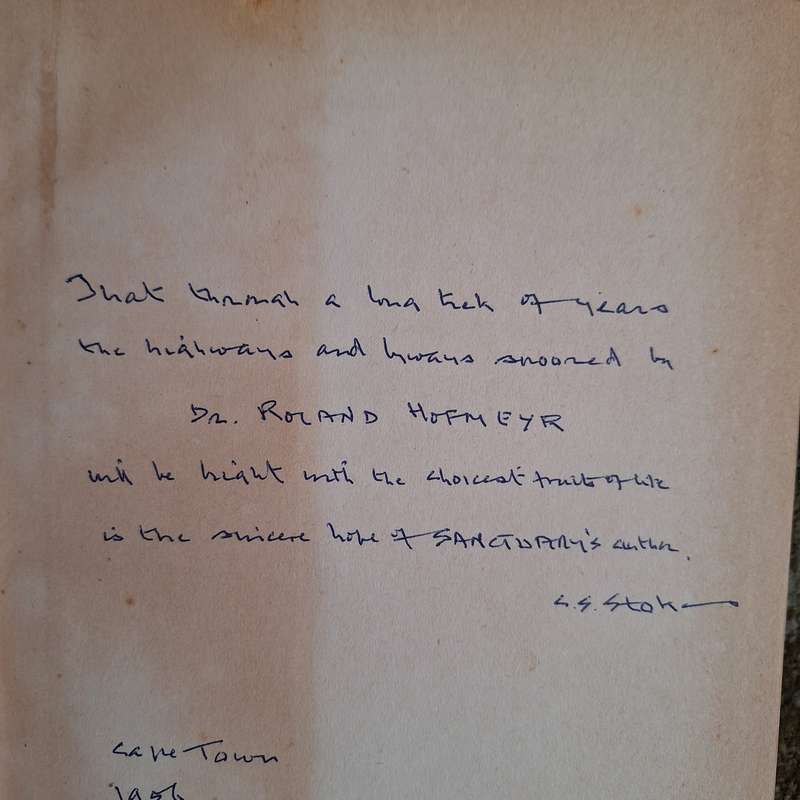 That through a long trek of years
the highways and byways spoored by
DR. ROLAND HOFMEYR
will be bright with the choicest fruits of life
is the sincere hope of SANCTUARY's author.
C.S. Stokes
Cape Town
1956